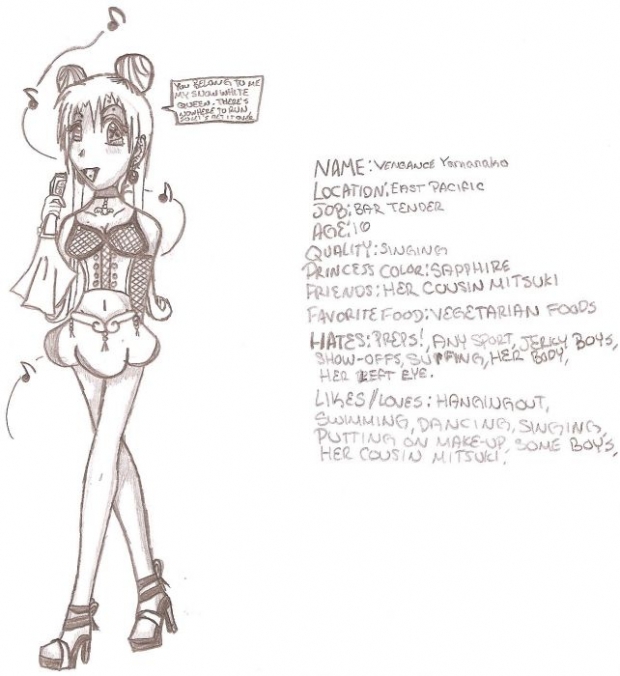 YOU BELONG TO ME
MY SNOW WHITE
QUEEN. THERE'S
NOWHERE TO RUN,
GET IT OVER
NAME: VENGANCE Yamanako
LOCATION: EAST PACIFIC
JOB: BAR TENDER
AGE: 10
QUALITY: SINGING
PRINCESS COLOR: SAPPHIRE
FRIENDS: HER COUSIN MITSUKI
FAVORITE FOOD: VEGETARIAN FOODS
HATES: PREPS!, ANY SPORT, JERKY BOYS,
SHOW-OFFS, SURFING, HER BODY,
HER LEFT EYE.
LIKES/LOVES: HANGING OUT,
SWIMMING, DANCING, SINGING,
PUTTING ON MAKE-UP, SOME BOYS,
HER COUSIN MITSUKI,